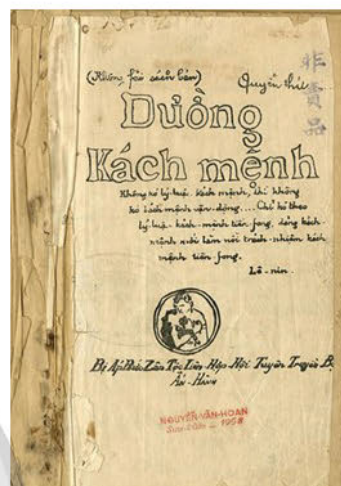 (Không fải sách bán)
Quyển thứ
非賣品
Đường
Kách mệnh
Không kó lý luận kách mệnh, thì không
kó kách mệnh vận-động.... Chỉ kó theo
lý luận kách-mệnh tiền-fong, đảng kách-
mệnh mới làm nổi trách-nhiệm kách
mệnh tiền-fong.
Lê-nin.
Bị Áp Bức Zân Tộc Liên Hợp Hội Tuyên Truyền Bộ
Ấn-Hành
NGUYỄN-VĂN-HOAN